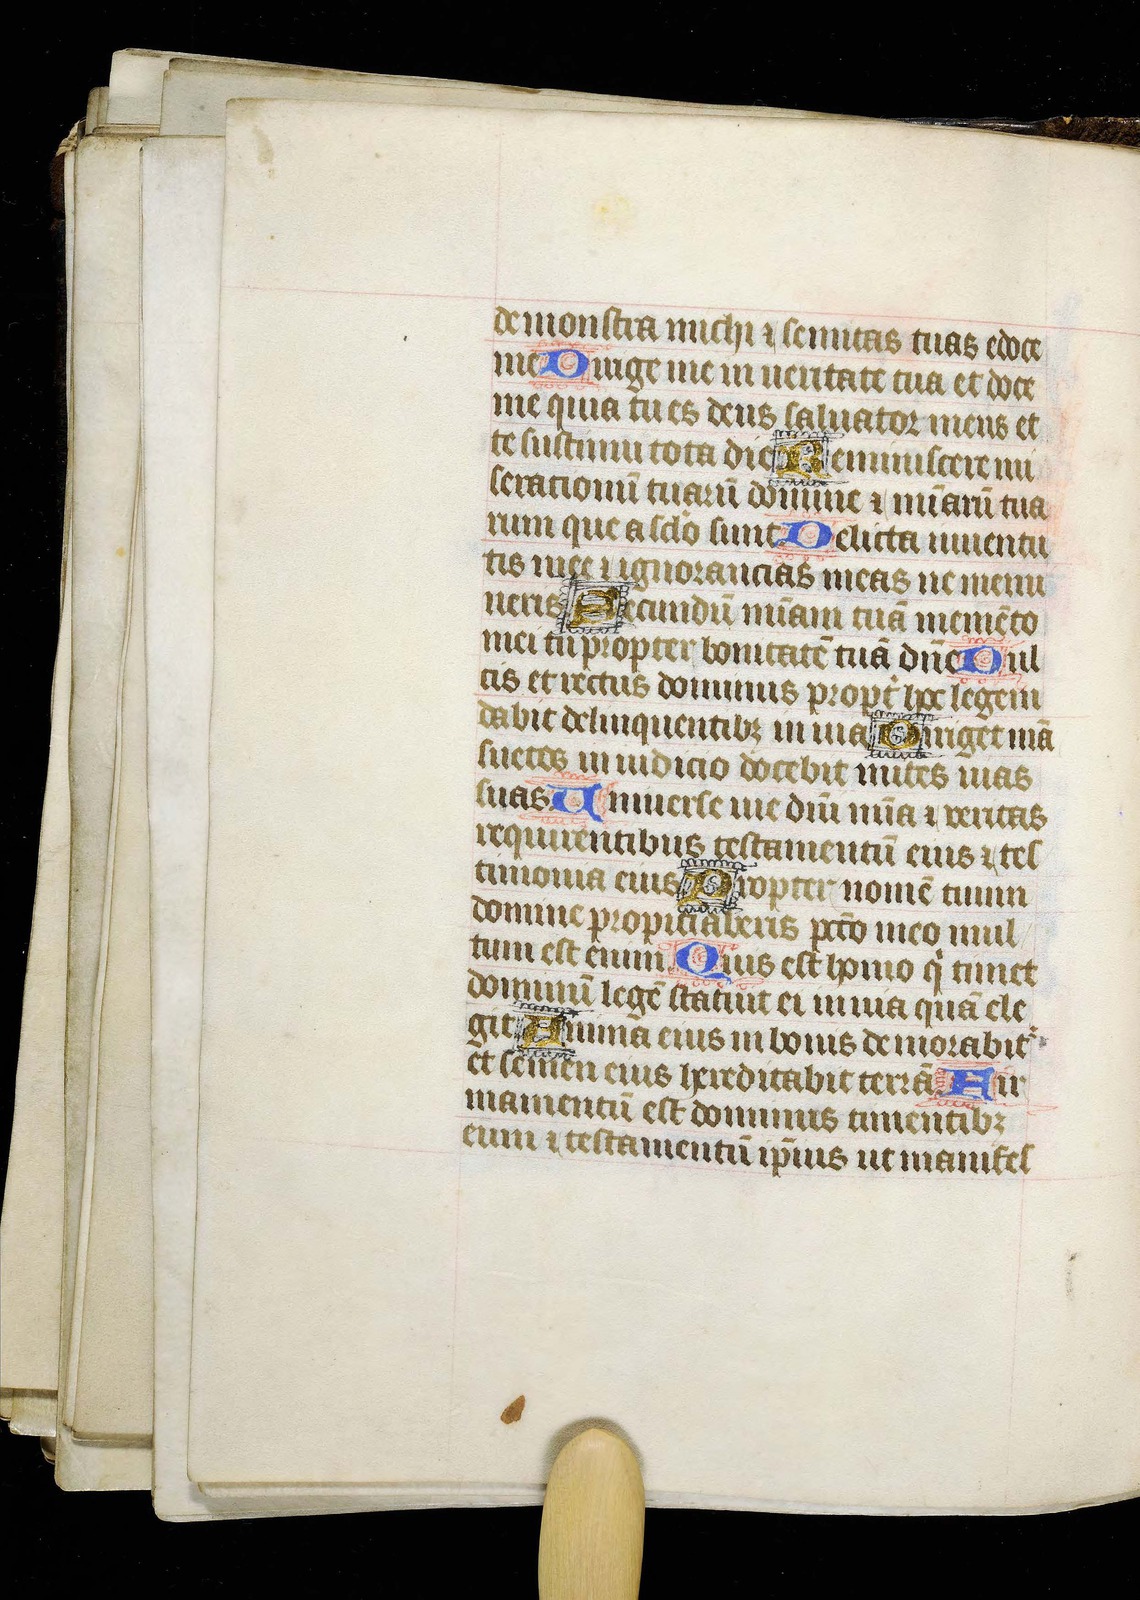 demonstra michi ⁊ semitas tuas edoce
me Dirige me in ueritate tua et doce
me quia tu es deus saluator meus et
te sustinui tota die Reminiscere mi
serationū tuarū domine ⁊ mīarū tua
rum que a sclo sunt Delicta iuuentu
tis mee ⁊ ignorancias meas ne memi
neris Secundū mīam tuā memēto
mei tu propter bonitatē tuā dn̄e Dul
cis et rectus dominus propt hoc legem
dabit delinquentibꝫ in uia Diriget mā
suetos in iudicio docebit mites uias
suas Uniuerse uie dn̄i mīa ⁊ veritas
requirentibus testamentū eius ⁊ tes
timonia eius Propter nomē tuum
domine propiciaberis pcc̄o meo mul
tum est enim Quis est homo qͥ timet
dominū legē statuit ei in uia quā ele
git Anima eius in bonis demorabit᷑
et semen eius hereditabit terrā Fir
mamentū est dominus timentibꝫ
eum ⁊ testamentū ip̄ius ut manifes